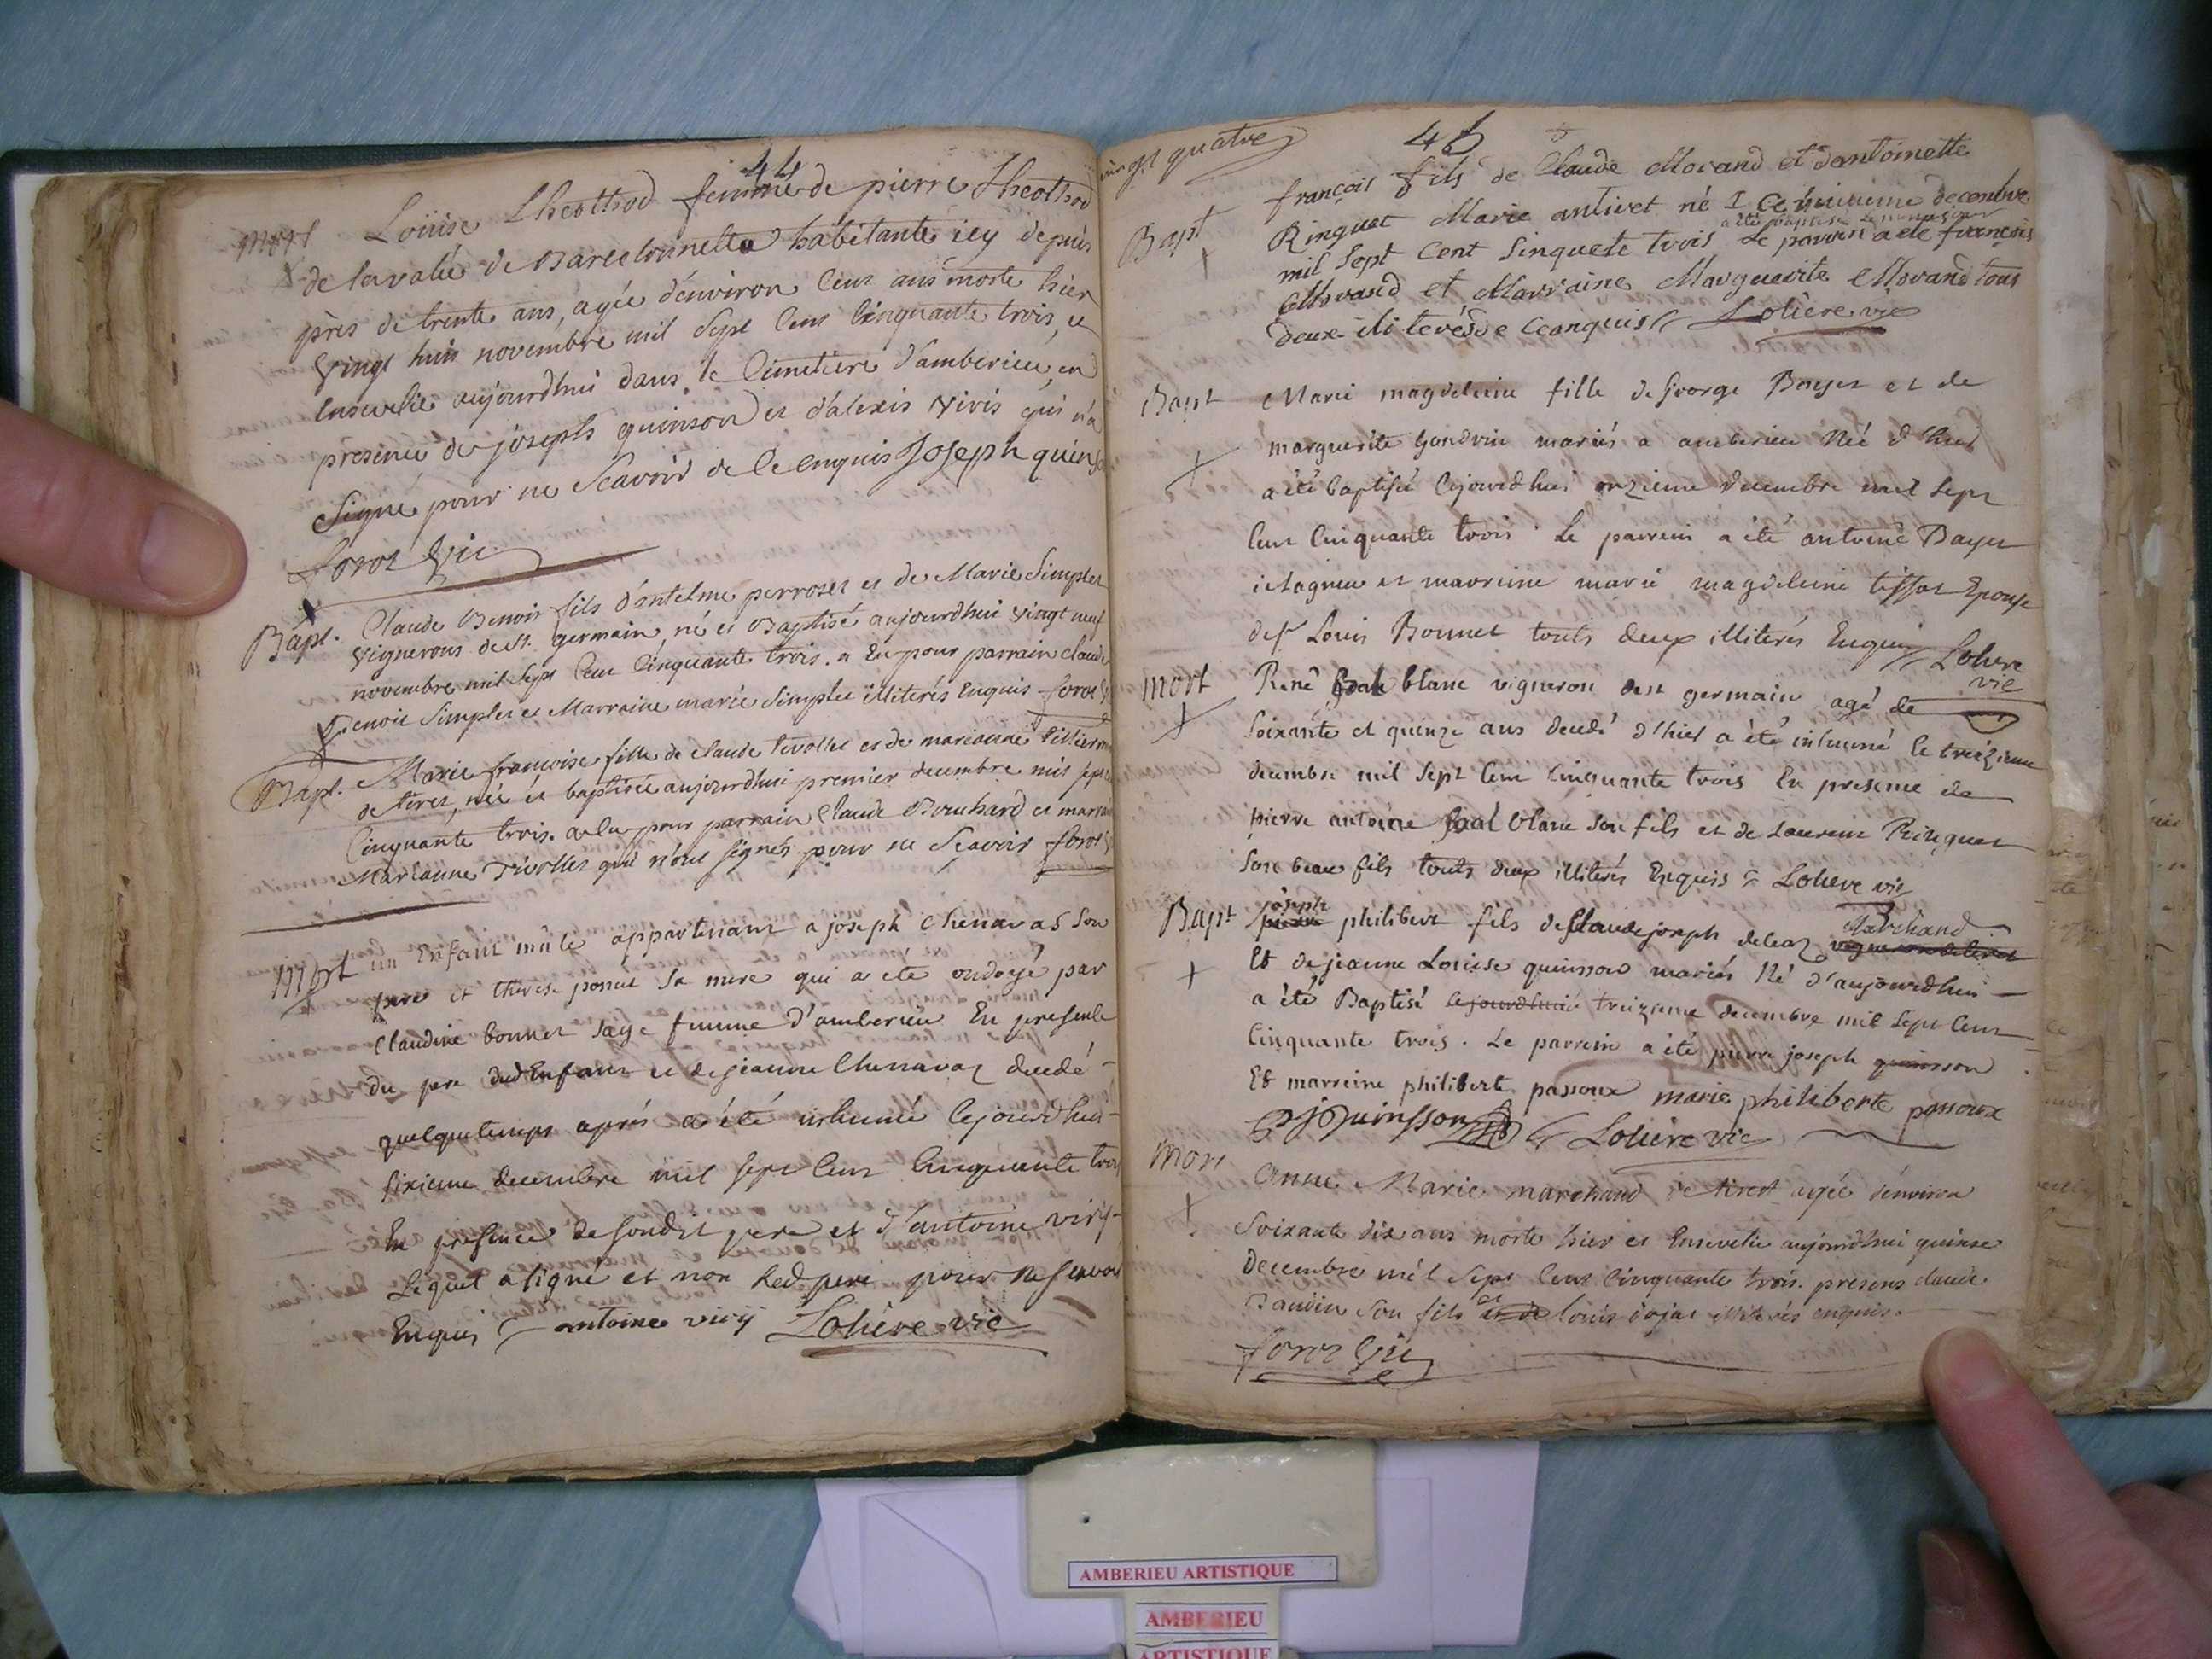 44
mort Loüise Lheottod femme de pierre Lheottod
de la valée de Barcelonnette habitante icy depuis
près de trente ans, agée d'environ cent ans morte hier
vingt huit novembre mil sept cent cinquante trois, et
ensevelie aujourdhui dans le Cimetiere d'amberieu, en
presence de joseph quinson et d'alexis vivis qui n'a
signé pour ne scavoir de ce enquis Joseph quins
foror vic
Bapt. Claude Benoit fils d'antelme perroset et de Marie Simplet
vignerons de st. germain, né et Baptisé aujourdhui vingt neuf
novembre mil sept cent cinquante trois. a eu pour parrain claude
Benoit Simplet et Marraine marie Simplet illiterés enquis foror
Bapt. Marie francoise fille de claude tivollet et de marianne
de tiret, née et baptisée aujourdhui premier decembre mil sept
cinquante trois. a eu pour parrain Claude Bouchard et marraine
Marianne Tivollet qui n'ont signés pour ne Scavoir foror
Mort un Enfant mâle appartenant a joseph Chenavas son
pere et therese ponsut sa mere qui a ete ondoyé par
Claudine bonnet sage femme d'amberieu En presence
du pere dud Enfant et de jeanne Chenavaz decedé
quelquetemps aprés a été inhumé cejourdhui
sixieme decembre mil sept cent cinquante trois
En presence de sondit pere et d'antoine viry
Lequel a signé et non led pere pour ne scavoir
Enquis antoine viry Loliere vic
vingt quatre
45
françois fils de Claude Morand et d'antoinette
Bapt Ringuet Marie antivet né ce decembre
a été baptisé le meme jour
mil Sept Cent Sinquete trois Le parrin a ete françois
Morand et Marraine Marguerite Morand tous
deux iliteres de ce anquis Loliere vic
Bapt Marie magdeleine fille de George Bayet et de
marguerite Gondvin mariés a amberieu Née d'hier
a été baptisée cejourdhui onzieme decembre mil sept
cent cinquante trois Le parrein a été antoine Bayet
et marreine marie magdeleine tissot Epouse
de sr Louis Bonnet touts deux illiterés Enquis Loliere
vic
mort René blanc vigneron de st germain agé de
soixante et quinze ans decedé d'hier a été inhumé le treizieme
decembre mil sept cent cinquante trois En presence de
pierre antoine blanc son fils et de Laurent Ringuet
son beau fils touts deux illiterés Enquis Loliere vic
joseph
Bapt pierre philibert fils de Claude joseph deleaz Marchand
Et de jeanne Louise quinson mariés Né d'aujourdhui
a été Baptisé cejourdhui treizieme decembre mil sept cent
Cinquante trois. Le parrein a été pierre joseph quinsson
Et marreine philiberte passoux marie philiberte passoux
pjquinsson Loliere vic
Mort Anne Marie marchand de tiret agée d'environ
Soixante dix ans morte hier et Ensevelie aujourdhui quinze
Decembre mil sept cent cinquante trois. presens claude
Baudin son fils et louis dojat illiterés enquis.
foror vic
AMBERIEU ARTISTIQUE
AMBERIEU
ARTISTIQUE